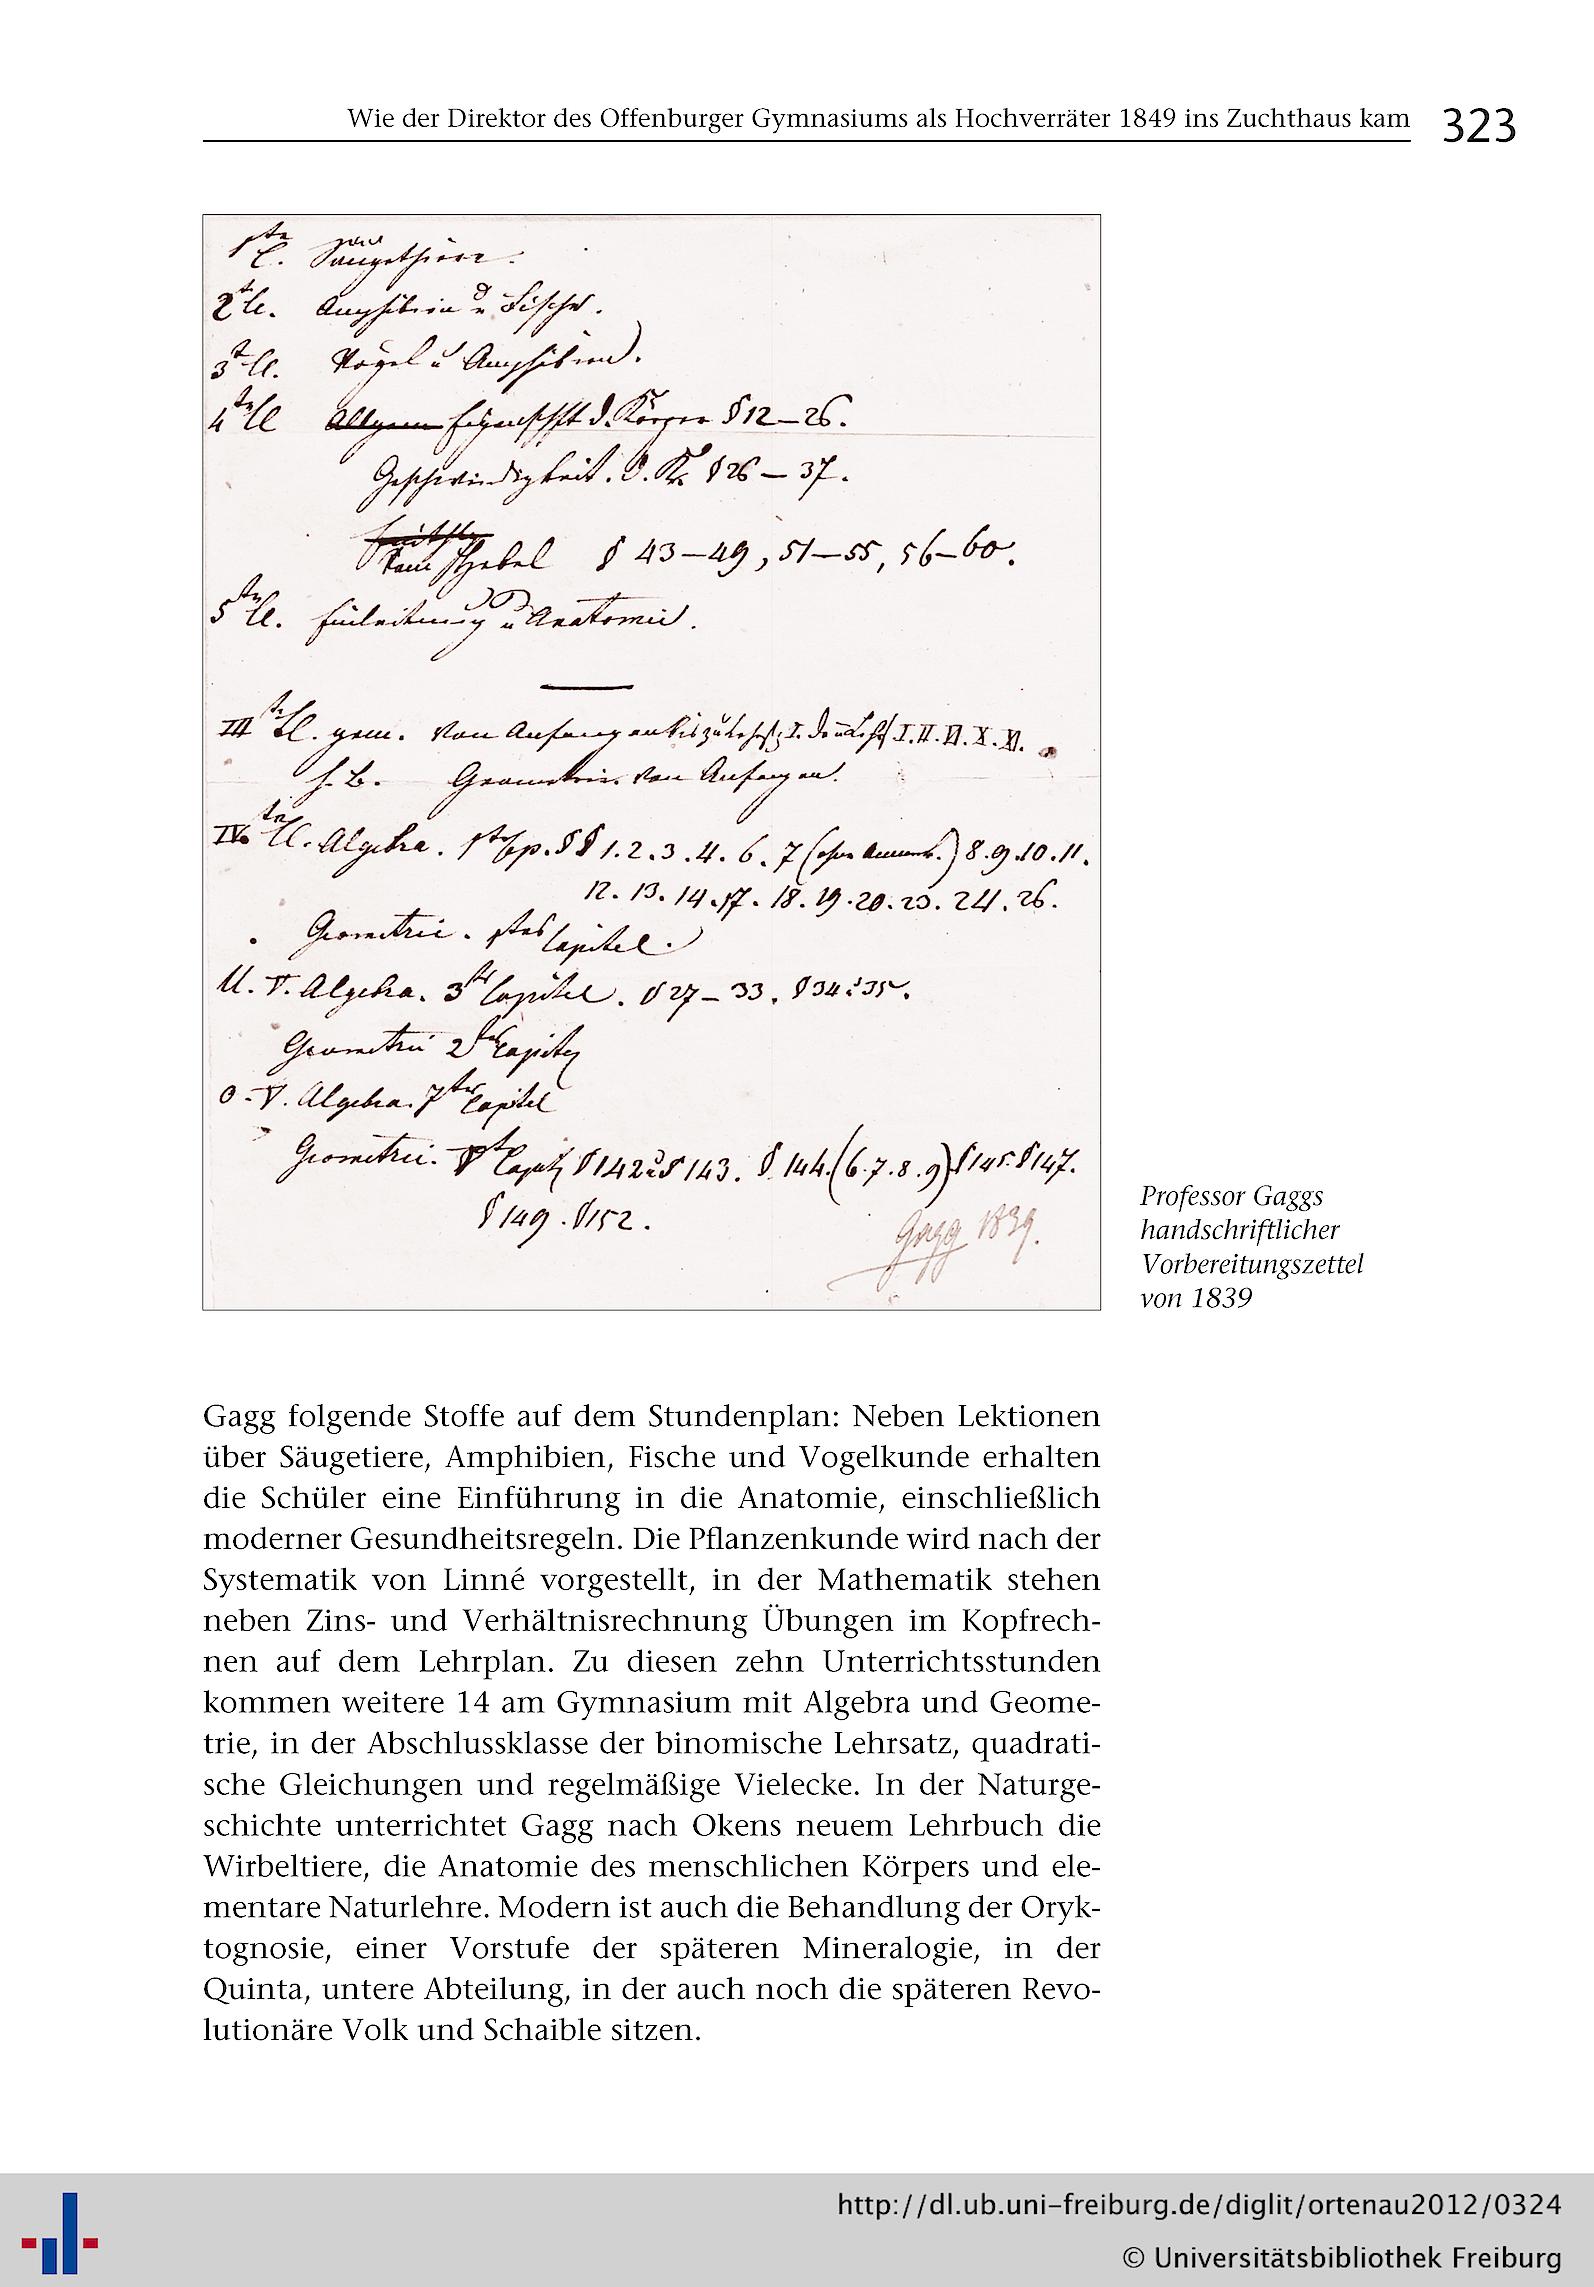 Wie der Direktor des Offenburger Gymnasiums als Hochverräter 1849 ins Zuchthaus kam 323
1te C. Säugethiere.
2te Cl. Amphibien u Fische.
3te Cl. Vögel u Amphibien.
4te Cl Allgem Eigenschft d. Körper § 12–26.
Geschwindigkeit. d. K. § 26 – 37.
Hebel § 43–49, 51–55, 56–60.
5te Cl. Einleitung u Anatomie.
III te Cl. gem. Von Anfang an bis I. I. II. VI. X. XI.
Geometrie. Von Anfang an.
IV. te Cl. Algebra. 1tes §§ 1. 2. 3. 4. 6. 7 ( ) 8. 9. 10. 11.
12. 13. 14. 17. 18. 19. 20. 23. 24. 26.
Geometrie. 1tes Capitel.
U. V. Algebra. 3tes Capitel. § 27 – 33. § 34 35.
Geometrie 2tes Capitel
O. V. Algebra. 7tes Capitel
Geometrie. Capitel § 142 u § 143. § 144. (6. 7. 8. 9) § 145. § 147.
§ 149. § 152.
Gagg 1839.
Professor Gaggs
handschriftlicher
Vorbereitungszettel
von 1839
Gagg folgende Stoffe auf dem Stundenplan: Neben Lektionen
über Säugetiere, Amphibien, Fische und Vogelkunde erhalten
die Schüler eine Einführung in die Anatomie, einschließlich
moderner Gesundheitsregeln. Die Pflanzenkunde wird nach der
Systematik von Linné vorgestellt, in der Mathematik stehen
neben Zins- und Verhältnisrechnung Übungen im Kopfrech-
nen auf dem Lehrplan. Zu diesen zehn Unterrichtsstunden
kommen weitere 14 am Gymnasium mit Algebra und Geome-
trie, in der Abschlussklasse der binomische Lehrsatz, quadrati-
sche Gleichungen und regelmäßige Vielecke. In der Naturge-
schichte unterrichtet Gagg nach Okens neuem Lehrbuch die
Wirbeltiere, die Anatomie des menschlichen Körpers und ele-
mentare Naturlehre. Modern ist auch die Behandlung der Oryk-
tognosie, einer Vorstufe der späteren Mineralogie, in der
Quinta, untere Abteilung, in der auch noch die späteren Revo-
lutionäre Volk und Schaible sitzen.
http://dl.ub.uni-freiburg.de/diglit/ortenau2012/0324
© Universitätsbibliothek Freiburg